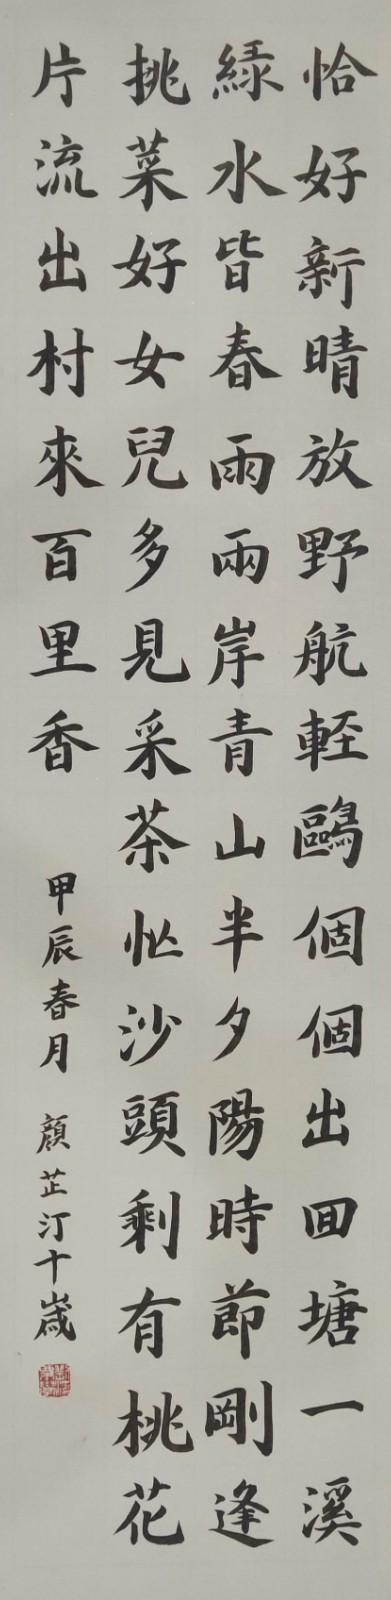 恰好新晴放野航輕鷗個個出回塘一溪
綠水皆春雨兩岸青山半夕陽時節剛逢
挑菜好女兒多見采茶忙沙頭剩有桃花
片流出村來百里香
甲辰春月 顏芷汀十歲